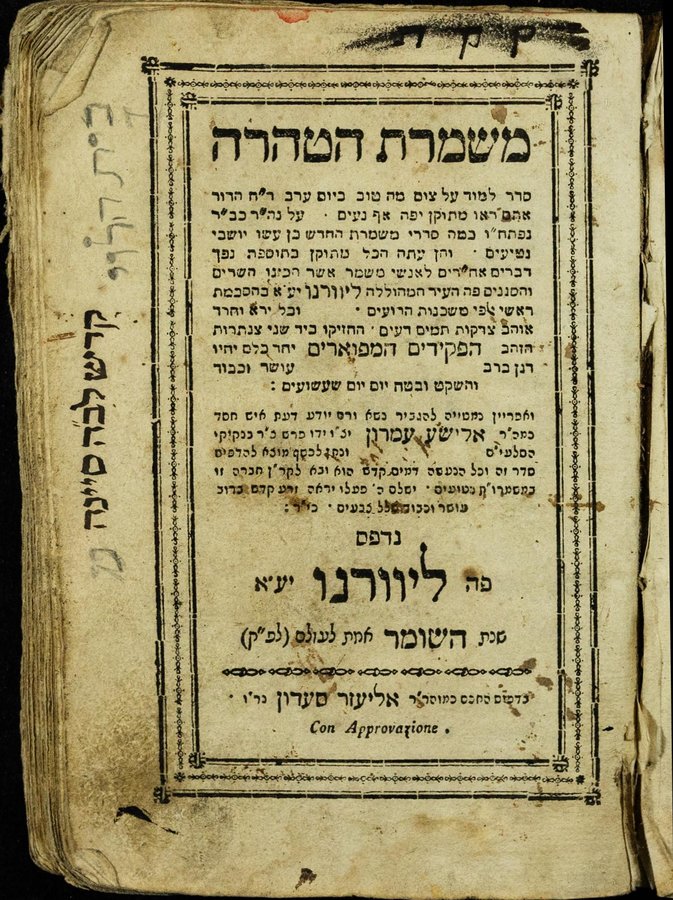 ק ק ת
משמרת הטהרה
סדר למוד על צום מה טוב ביום ערב ר״ח הדור
אתם ראו מתוקן יפה אף נעים · על נה״ר כב״ר
נפתח״ו במה סדרי משמרת החדש בן עשו יושבי
נטיעים · והן עתה הכל מתוקן בתוספת נפך
דברים אחרים לאנשי משמר אשר הכינו השרים
והסגנים פה העיר המהוללה ליוורנו יע״א בהסכמת
ראשי לפי משכנות הרועים · וכל ירא וחרד
אוהב צדקות תמים דעים · החזיקו ביד שני צנתרות
הזהב הפקידים המפוארים יחד כלם יהיו
דגן ברב עושר וכבוד
והשקט ובטח יום יום שעשועים :
ואפריין נמטייה להגביר נשא ורם יודע דעת איש חסד
כמה״ר אלישע עמרון ידו פרש בנקיקי
הסלעי״ם ונתן לכסף מוצא להדפיס
סדר זה וכל הנעשה דמים קדש הוא ובא לקר״ן חברה זו
במשמרו״ת נטועים · ישלם ה׳ פעלו יראה זרע קדש ברוב
עושר וכבוד שלל צבעים · כי״ר :
נדפס
פה ליוורנו יע״א
שנת השומר אמת לעולם (לפ״ק)
בדפוס החכם כמוהר״ר אליעזר סעדון נר״ו ·
Con Approvazione .
בית הלוי
קדיש לבה סיינה